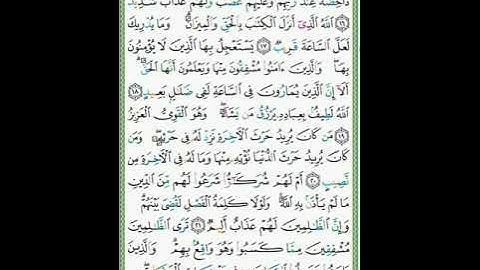 دَاحِضَةٌ عِندَ رَبِّهِمْ وَعَلَيْهِمْ غَضَبٌ وَلَهُمْ عَذَابٌ شَدِيدٌ
١٦ ٱللَّهُ ٱلَّذِىٓ أَنزَلَ ٱلْكِتَٰبَ بِٱلْحَقِّ وَٱلْمِيزَانَ ۗ وَمَا يُدْرِيكَ
لَعَلَّ ٱلسَّاعَةَ قَرِيبٌ ١٧ يَسْتَعْجِلُ بِهَا ٱلَّذِينَ لَا يُؤْمِنُونَ
بِهَا ۖ وَٱلَّذِينَ ءَامَنُوا۟ مُشْفِقُونَ مِنْهَا وَيَعْلَمُونَ أَنَّهَا ٱلْحَقُّ ۗ
أَلَآ إِنَّ ٱلَّذِينَ يُمَارُونَ فِى ٱلسَّاعَةِ لَفِى ضَلَٰلٍۭ بَعِيدٍ ١٨
ٱللَّهُ لَطِيفٌۢ بِعِبَادِهِۦ يَرْزُقُ مَن يَشَآءُ ۖ وَهُوَ ٱلْقَوِىُّ ٱلْعَزِيزُ
١٩ مَن كَانَ يُرِيدُ حَرْثَ ٱلْءَاخِرَةِ نَزِدْ لَهُۥ فِى حَرْثِهِۦ ۖ وَمَن
كَانَ يُرِيدُ حَرْثَ ٱلدُّنْيَا نُؤْتِهِۦ مِنْهَا وَمَا لَهُۥ فِى ٱلْءَاخِرَةِ مِن
نَّصِيبٍ ٢٠ أَمْ لَهُمْ شُرَكَٰٓؤُا۟ شَرَعُوا۟ لَهُم مِّنَ ٱلدِّينِ
مَا لَمْ يَأْذَنۢ بِهِ ٱللَّهُ ۚ وَلَوْلَا كَلِمَةُ ٱلْفَصْلِ لَقُضِىَ بَيْنَهُمْ ۗ
وَإِنَّ ٱلظَّٰلِمِينَ لَهُمْ عَذَابٌ أَلِيمٌ ٢١ تَرَى ٱلظَّٰلِمِينَ
مُشْفِقِينَ مِمَّا كَسَبُوا۟ وَهُوَ وَاقِعٌۢ بِهِمْ ۗ وَٱلَّذِينَ